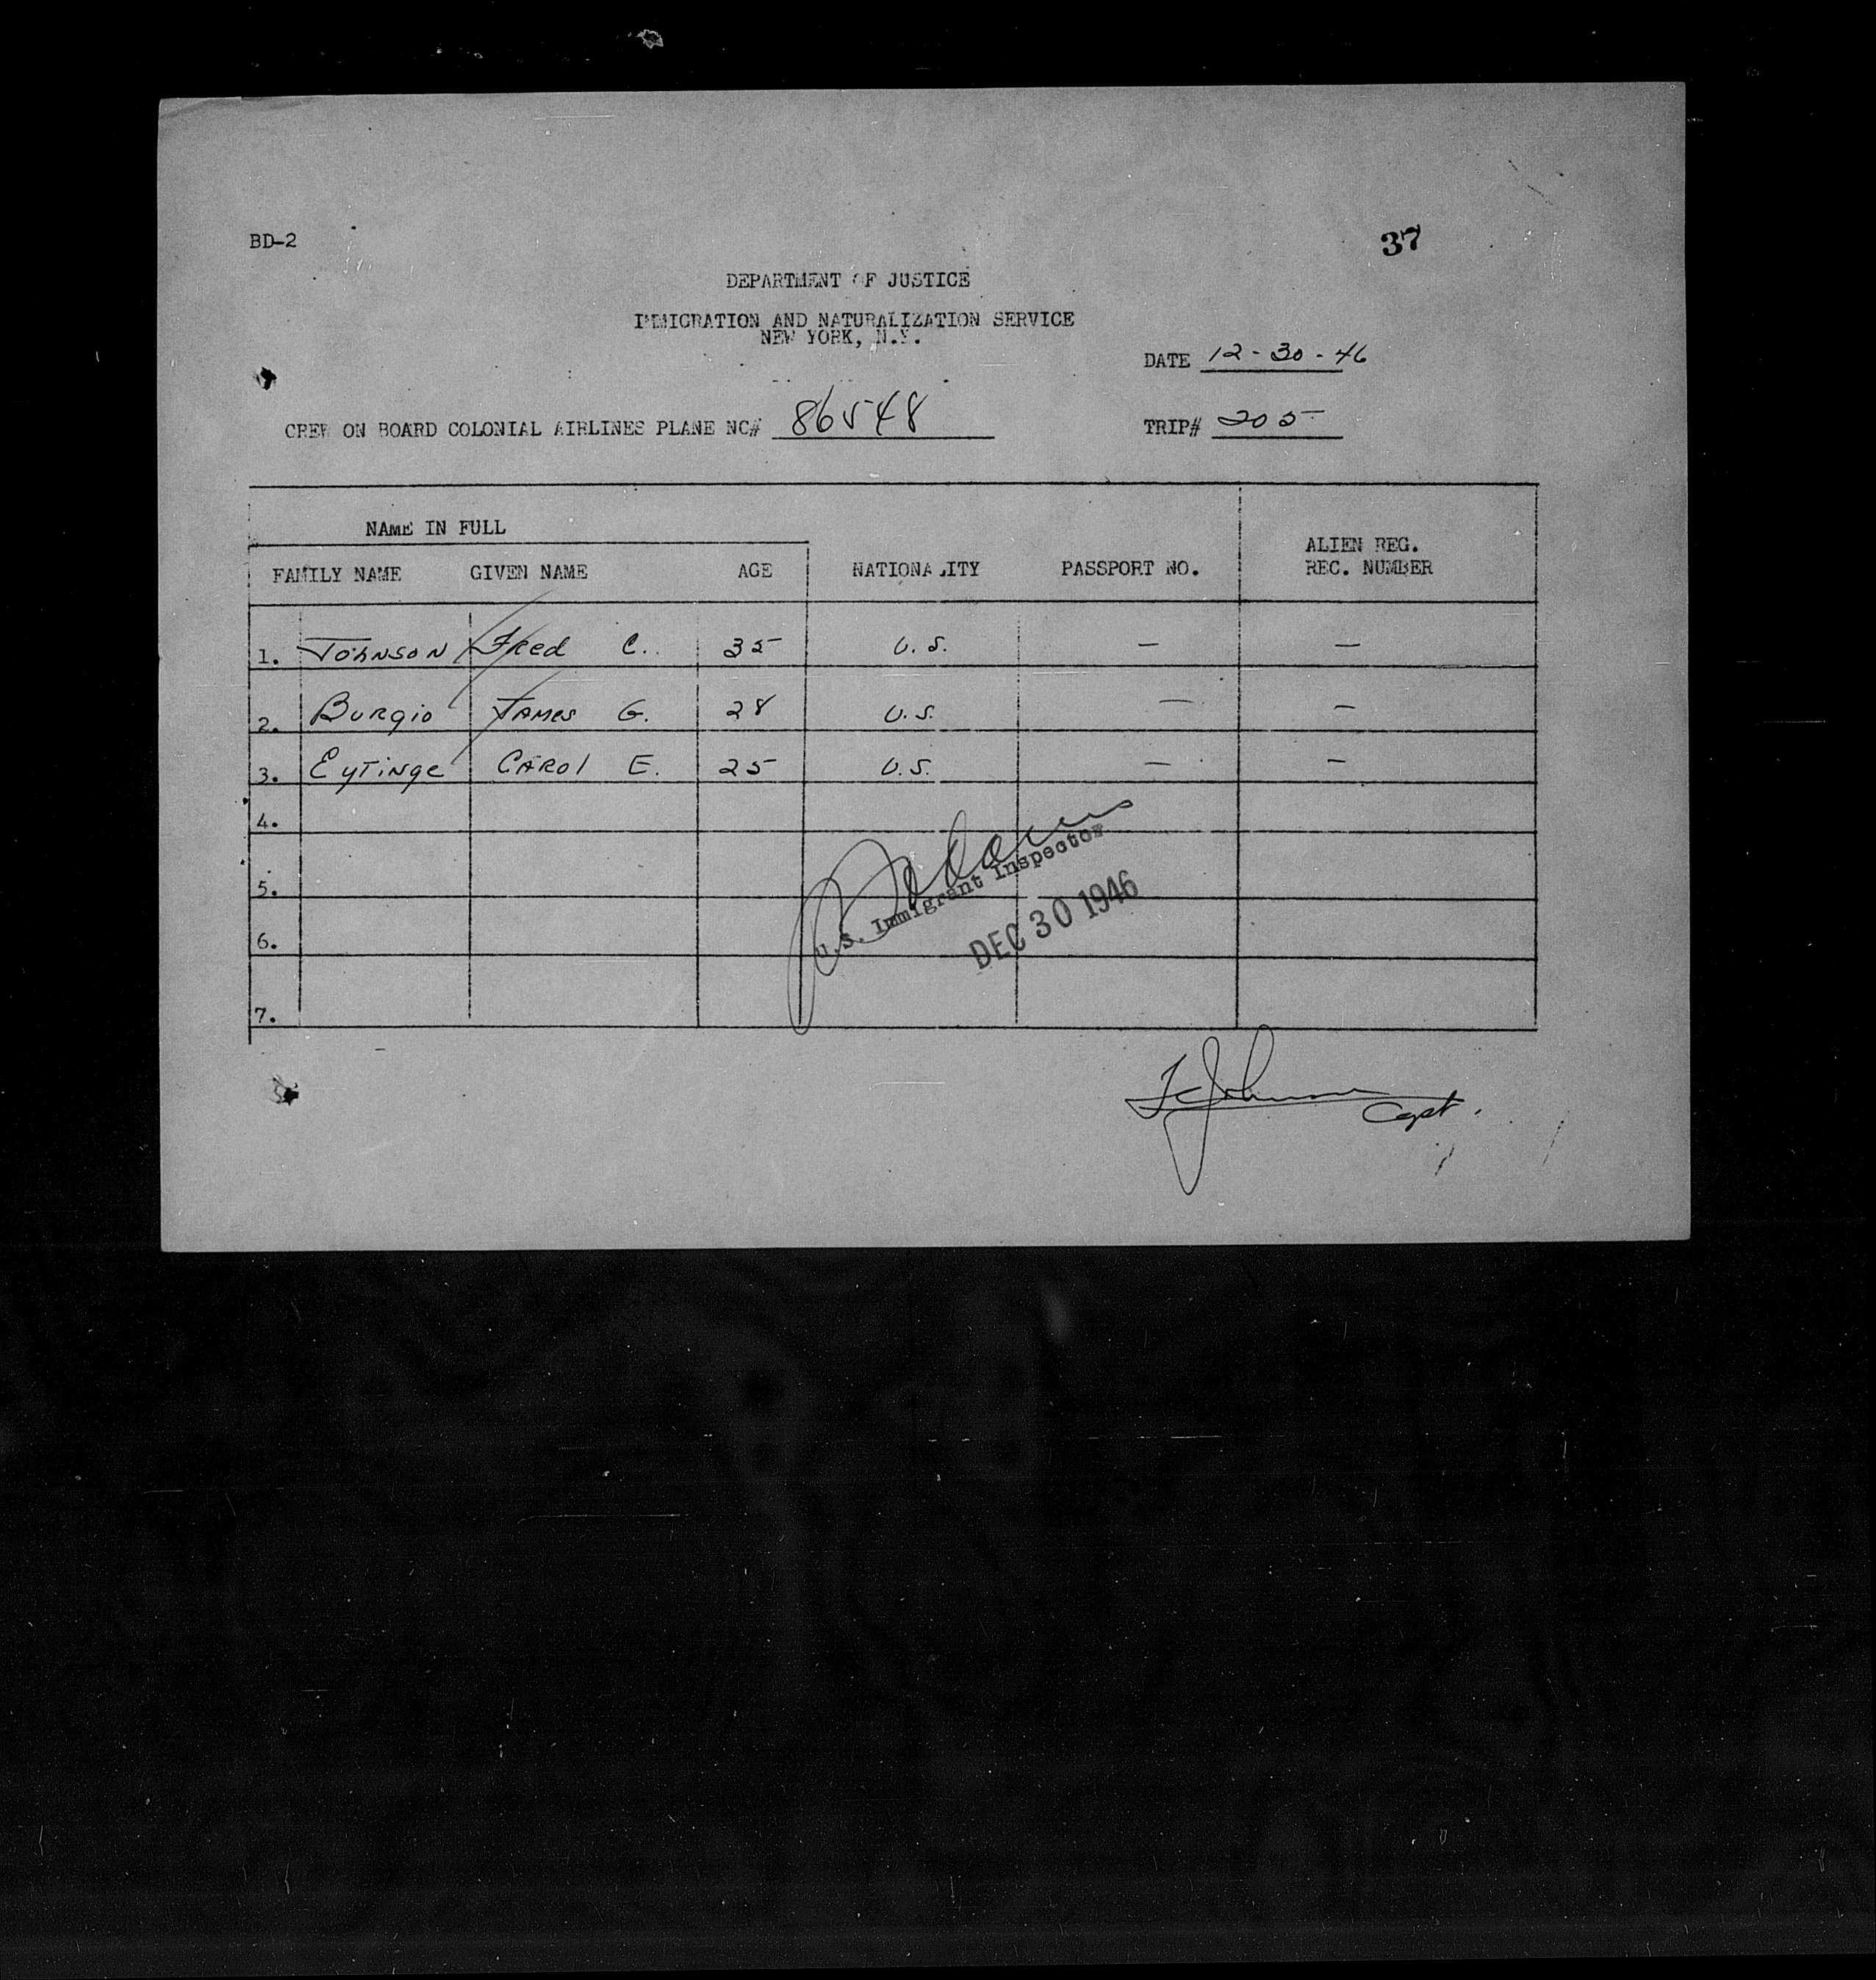 BD-2
37
DEPARTMENT OF JUSTICE
IMMIGRATION AND NATURALIZATION SERVICE
NEW YORK, N.Y.
DATE 12-30-46
CREW ON BOARD COLONIAL AIRLINES PLANE NC# 86548
TRIP# 205
NAME IN FULL
FAMILY NAME GIVEN NAME AGE NATIONALITY PASSPORT NO. ALIEN REG. REC. NUMBER
1. Johnson Fred C. 35 U.S. — —
2. Burgio James G. 28 U.S. — —
3. Eytinge Carol E. 25 U.S. — —
4.
5.
6.
7.
U.S. Immigrant Inspector
DEC 30 1946
F C Johnson Capt.